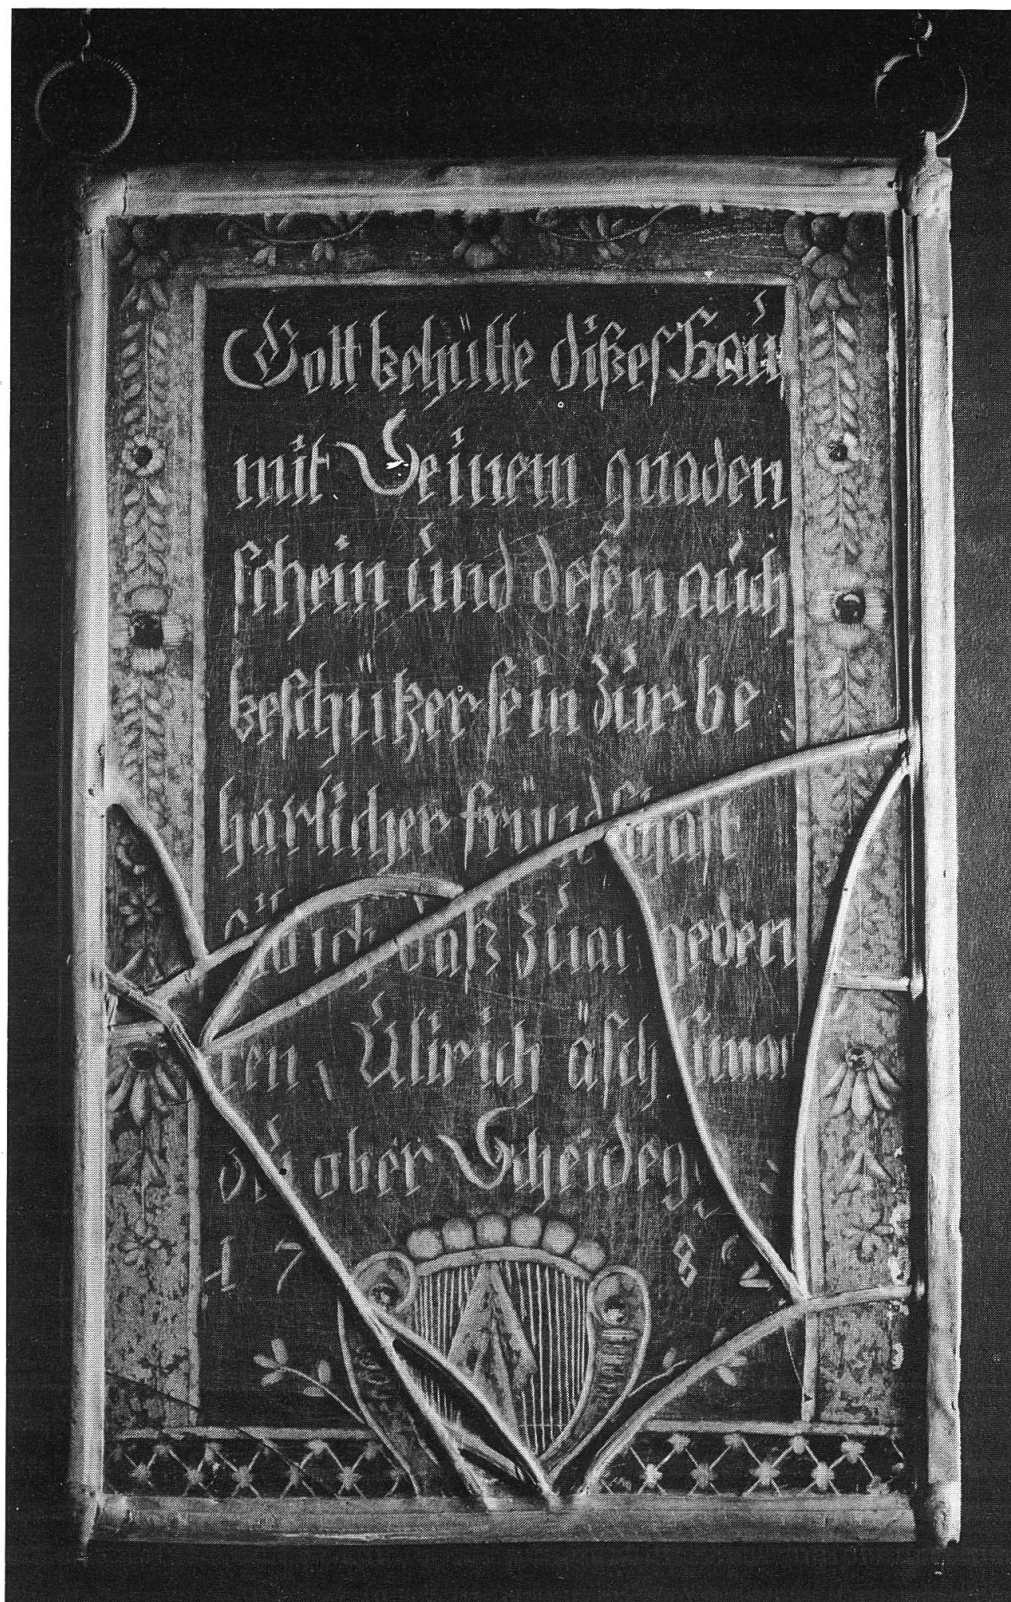 Gott behütte dißes Hauß
mit Seinem gnaden
schein und deßen auch
beschützer sein zur be
harlicher fründschafft
daß zum gedenk
ten, Ullrich äschlimann
ober Scheideg
17 82